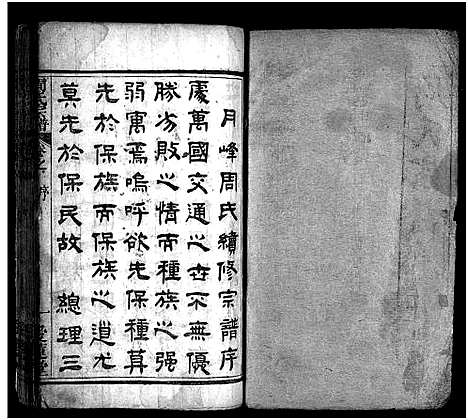 月峰周氏續修宗譜序
處萬國交通之世不無優
勝劣敗之情而種族之強
弱寓焉嗚呼欲先保種莫
先於保族而保族之道尤
莫先於保民故　總理三